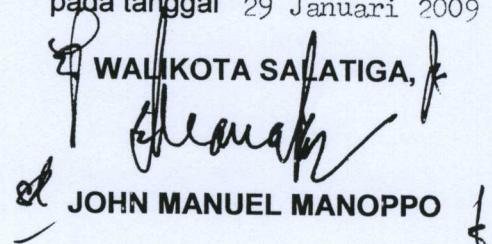 pada tanggal 29 Januari 2009
WALIKOTA SALATIGA,
JOHN MANUEL MANOPPO